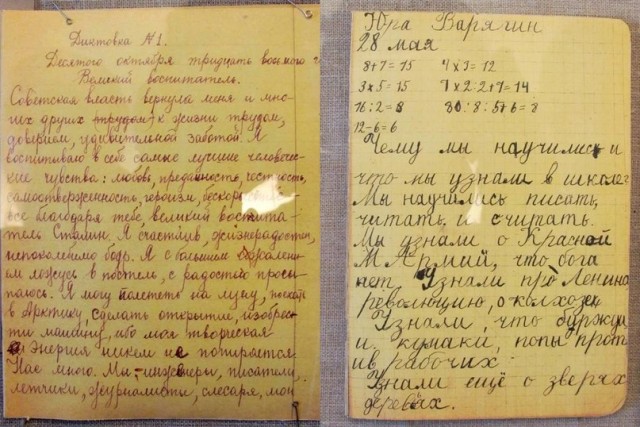 Диктовка № 1.
Десятого октября тридцать восьмого г
Великий воспитатель.
Советская власть вернула меня и мно-
гих других трудом к жизни трудом,
доверием, удивительной заботой. Я
воспитываю в себе самые лучшие человечес-
кие чувства: любовь, преданность, честность,
самоотверженность, героизм, бескорыст
все благодаря тебе великий воспита-
тель Сталин. Я счастлив, жизнерадостен,
непоколебимо бодр. Я с большим
ложусь в постель, с радостью просы-
паюсь. Я могу полететь на луну, поехать
в Арктику, сделать открытие, изобрес-
ти машину, ибо моя творческая
энергия никем не попирается.
Нас много. Мы-инженеры, писатели,
летчики, журналисты, слесаря, мон
Юра Варягин
28 мая
8+7=15 4×3=12
3×5=15 7×2:2+7=14
16:2=8 30:8:5+6=8
12-6=6
Чему мы научились и
что мы узнали в школе?
Мы научились писать,
читать, и считать.
Мы узнали о Красной
М Армий, что бога
нет. Узнали про Ленина
революцию, о колхозе
Узнали, что буржуи
и кулаки, попы прот
ив рабочих.
Узнали ещё о зверях
деревах.